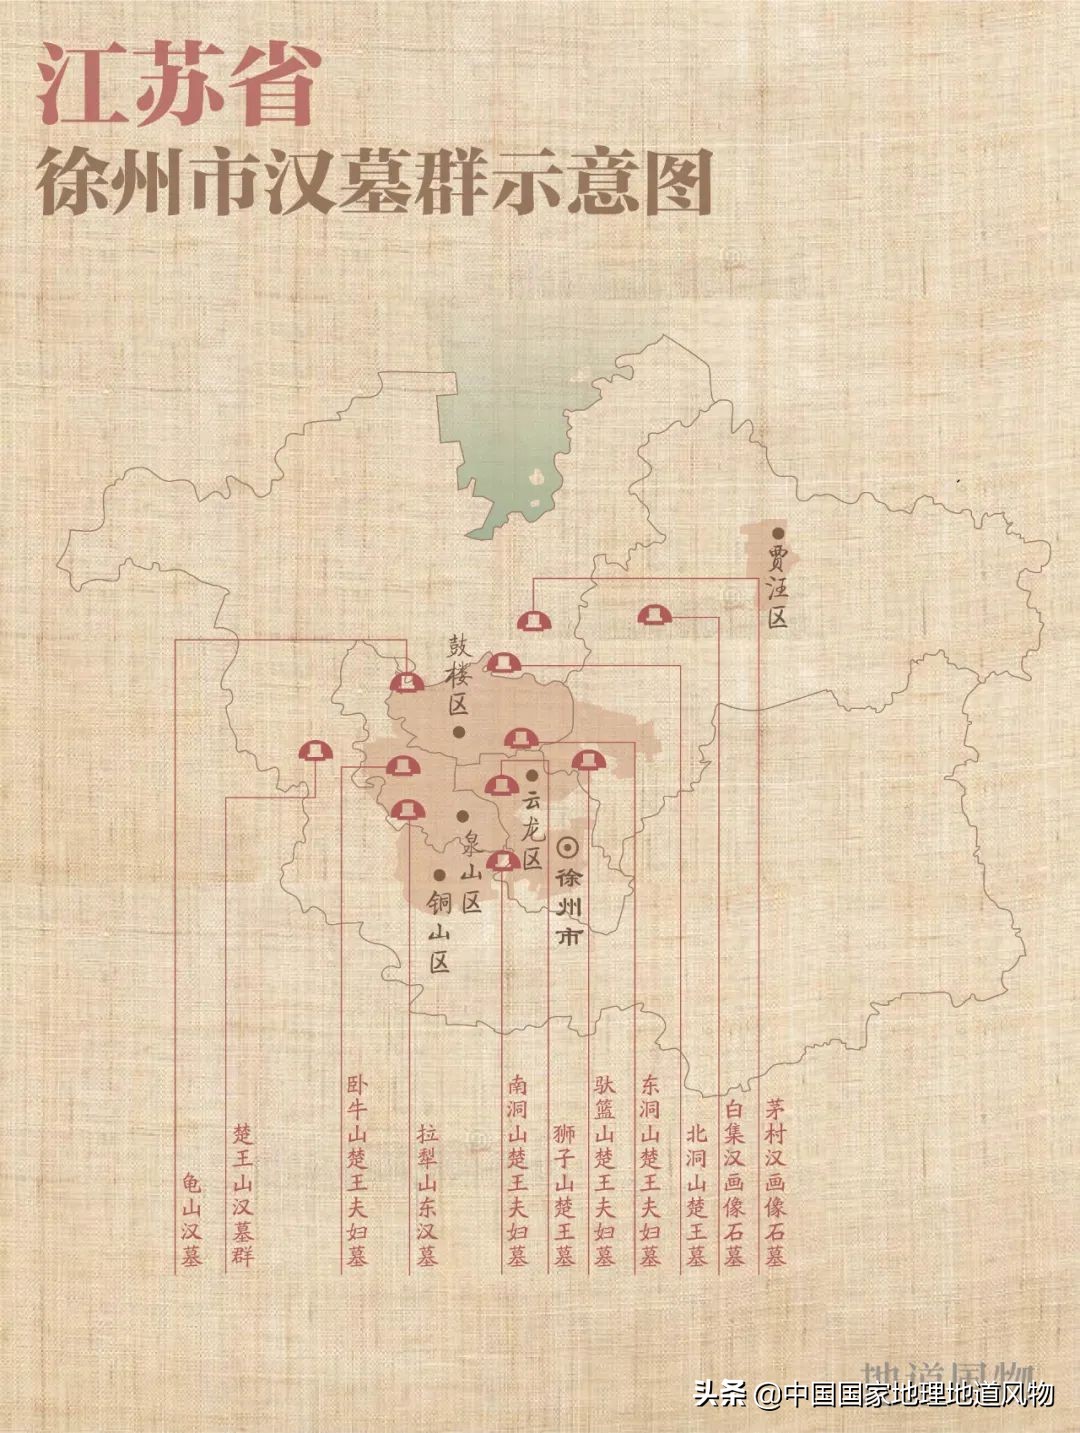 江苏省
徐州市汉墓群示意图
贾汪区
鼓楼区
云龙区
泉山区
徐州市
铜山区
龟山汉墓
楚王山汉墓群
卧牛山楚王夫妇墓
拉犁山东汉墓
南洞山楚王夫妇墓
狮子山楚王墓
驮篮山楚王夫妇墓
东洞山楚王夫妇墓
北洞山楚王墓
白集汉画像石墓
茅村汉画像石墓
地道风物
头条 @中国国家地理地道风物